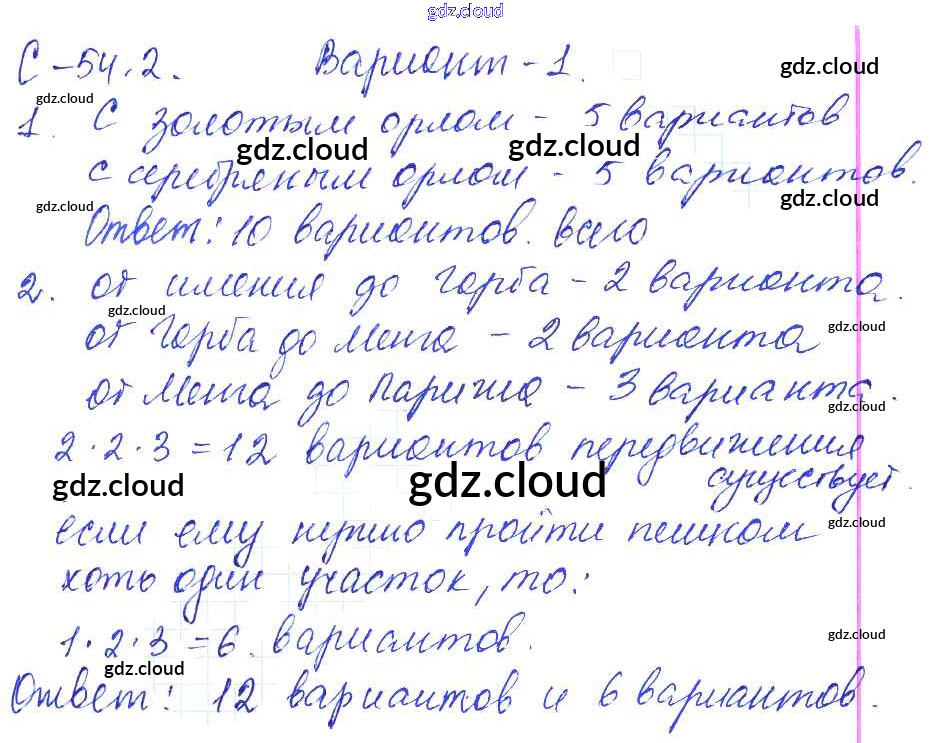 gdz.cloud
С-54.2. Вариант-1. gdz.cloud
gdz.cloud
1. С золотым орлом - 5 вариантов
gdz.cloud gdz.cloud
с серебряным орлом - 5 вариантов.
gdz.cloud gdz.cloud
Ответ: 10 вариантов. всего
2. от имения до Горба - 2 варианта.
gdz.cloud gdz.cloud
от Горба до Менга - 2 варианта
от Менга до Парижа - 3 варианта.
gdz.cloud
2·2·3=12 вариантов передвижения
существует.
gdz.cloud gdz.cloud
gdz.cloud
если ему нужно пройти пешком
хоть один участок, то:
1·2·3=6. вариантов.
gdz.cloud gdz.cloud
Ответ: 12 вариантов и 6 вариантов.